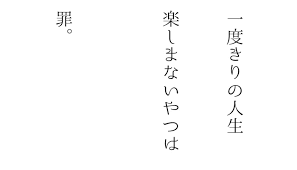 一度きりの人生
楽しまないやつは
罪。